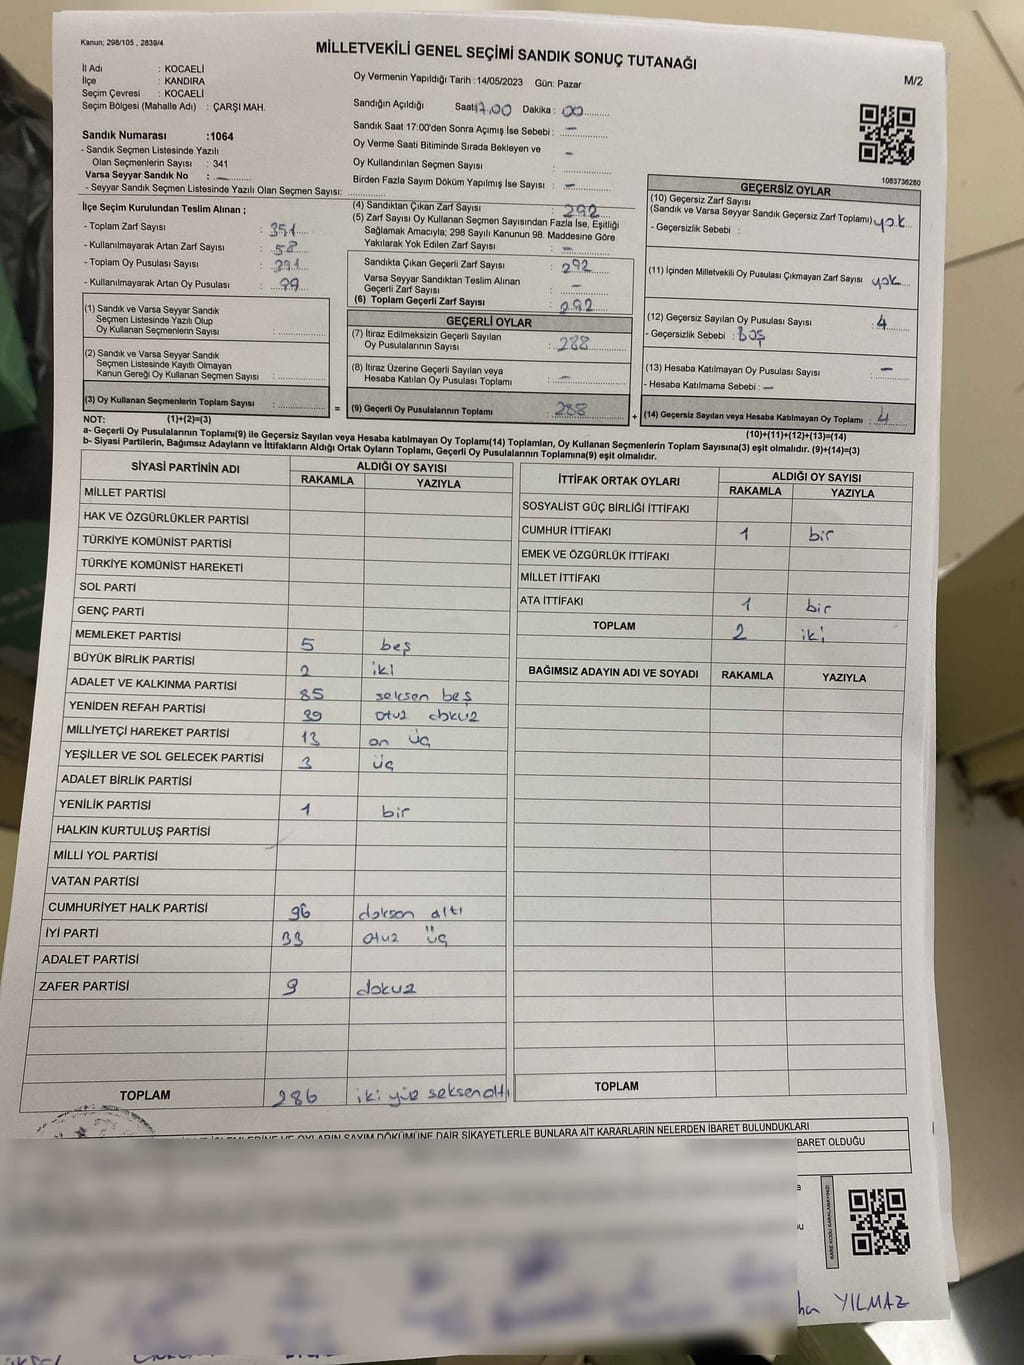 Kanun; 298/105 , 2839/4
MİLLETVEKİLİ GENEL SEÇİMİ SANDIK SONUÇ TUTANAĞI
M/2
İl Adı : KOCAELİ
İlçe : KANDIRA
Seçim Çevresi : KOCAELİ
Seçim Bölgesi (Mahalle Adı) : ÇARŞI MAH.
Sandık Numarası :1064
- Sandık Seçmen Listesinde Yazılı
Olan Seçmenlerin Sayısı : 341
Varsa Seyyar Sandık No : —
- Seyyar Sandık Seçmen Listesinde Yazılı Olan Seçmen Sayısı:
Oy Vermenin Yapıldığı Tarih : 14/05/2023 Gün: Pazar
Sandığın Açıldığı Saat: 17.00 Dakika : 00
Sandık Saat 17:00'den Sonra Açımış İse Sebebi : —
Oy Verme Saati Bitiminde Sırada Bekleyen ve
Oy Kullandırılan Seçmen Sayısı : —
Birden Fazla Sayım Döküm Yapılmış İse Sayısı : —
1083736280
İlçe Seçim Kurulundan Teslim Alınan ;
- Toplam Zarf Sayısı : 351
- Kullanılmayarak Artan Zarf Sayısı : 58
- Toplam Oy Pusulası Sayısı : 391
- Kullanılmayarak Artan Oy Pusulası : 99
(1) Sandık ve Varsa Seyyar Sandık
Seçmen Listesinde Yazılı Olup
Oy Kullanan Seçmenlerin Sayısı :
(2) Sandık ve Varsa Seyyar Sandık
Seçmen Listesinde Kayıtlı Olmayan
Kanun Gereği Oy Kullanan Seçmen Sayısı :
(3) Oy Kullanan Seçmenlerin Toplam Sayısı :
(4) Sandıktan Çıkan Zarf Sayısı : 292
(5) Zarf Sayısı Oy Kullanan Seçmen Sayısından Fazla İse, Eşitliği
Sağlamak Amacıyla; 298 Sayılı Kanunun 98. Maddesine Göre
Yakılarak Yok Edilen Zarf Sayısı : —
Sandıkta Çıkan Geçerli Zarf Sayısı : 292
Varsa Seyyar Sandıktan Teslim Alınan
Geçerli Zarf Sayısı : —
(6) Toplam Geçerli Zarf Sayısı : 292
GEÇERLİ OYLAR
(7) İtiraz Edilmeksizin Geçerli Sayılan
Oy Pusulalarının Sayısı : 288
(8) İtiraz Üzerine Geçerli Sayılan veya
Hesaba Katılan Oy Pusulası Toplamı : —
= (9) Geçerli Oy Pusulalarının Toplamı : 288
GEÇERSİZ OYLAR
(10) Geçersiz Zarf Sayısı
(Sandık ve Varsa Seyyar Sandık Geçersiz Zarf Toplamı) : yok
- Geçersizlik Sebebi :
(11) İçinden Milletvekili Oy Pusulası Çıkmayan Zarf Sayısı : yok
(12) Geçersiz Sayılan Oy Pusulası Sayısı : 4
- Geçersizlik Sebebi : Boş
(13) Hesaba Katılmayan Oy Pusulası Sayısı : —
- Hesaba Katılmama Sebebi : —
+ (14) Geçersiz Sayılan veya Hesaba Katılmayan Oy Toplamı : 4
NOT: (1)+(2)=(3)
(10)+(11)+(12)+(13)=(14)
a- Geçerli Oy Pusulalarının Toplamı(9) ile Geçersiz Sayılan veya Hesaba katılmayan Oy Toplamı(14) Toplamları, Oy Kullanan Seçmenlerin Toplam Sayısına(3) eşit olmalıdır. (9)+(14)=(3)
b- Siyasi Partilerin, Bağımsız Adayların ve İttifakların Aldığı Ortak Oyların Toplamı, Geçerli Oy Pusulalarının Toplamına(9) eşit olmalıdır.
SİYASİ PARTİNİN ADI ALDIĞI OY SAYISI
RAKAMLA YAZIYLA
MİLLET PARTİSİ
HAK VE ÖZGÜRLÜKLER PARTİSİ
TÜRKİYE KOMÜNİST PARTİSİ
TÜRKİYE KOMÜNİST HAREKETİ
SOL PARTİ
GENÇ PARTİ
MEMLEKET PARTİSİ 5 beş
BÜYÜK BİRLİK PARTİSİ 2 iki
ADALET VE KALKINMA PARTİSİ 85 seksen beş
YENİDEN REFAH PARTİSİ 39 otuz dokuz
MİLLİYETÇİ HAREKET PARTİSİ 13 on üç
YEŞİLLER VE SOL GELECEK PARTİSİ 3 üç
ADALET BİRLİK PARTİSİ
YENİLİK PARTİSİ 1 bir
HALKIN KURTULUŞ PARTİSİ
MİLLİ YOL PARTİSİ
VATAN PARTİSİ
CUMHURİYET HALK PARTİSİ 96 doksan altı
İYİ PARTİ 33 otuz üç
ADALET PARTİSİ
ZAFER PARTİSİ 9 dokuz
TOPLAM 286 iki yüz seksen altı
İTTİFAK ORTAK OYLARI ALDIĞI OY SAYISI
RAKAMLA YAZIYLA
SOSYALİST GÜÇ BİRLİĞİ İTTİFAKI
CUMHUR İTTİFAKI 1 bir
EMEK VE ÖZGÜRLÜK İTTİFAKI
MİLLET İTTİFAKI
ATA İTTİFAKI 1 bir
TOPLAM 2 iki
BAĞIMSIZ ADAYIN ADI VE SOYADI RAKAMLA YAZIYLA
TOPLAM
OYLARIN SAYIM DÖKÜMÜNE DAİR ŞİKAYETLERLE BUNLARA AİT KARARLARIN NELERDEN İBARET BULUNDUKLARI
BARET OLDUĞU
YILMAZ